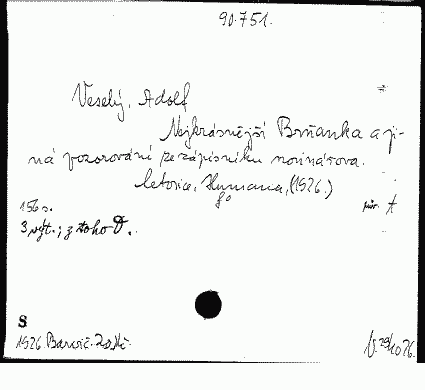 90.751.
Veselý, Adolf
Nejkrásnější Brňanka a ji-
ná pozorování ze zápisníku novinářova.
Letovice, Humana, (1926.)
8°
156 s. A
3 výt.; z toho D.
S
1926 Barvič.